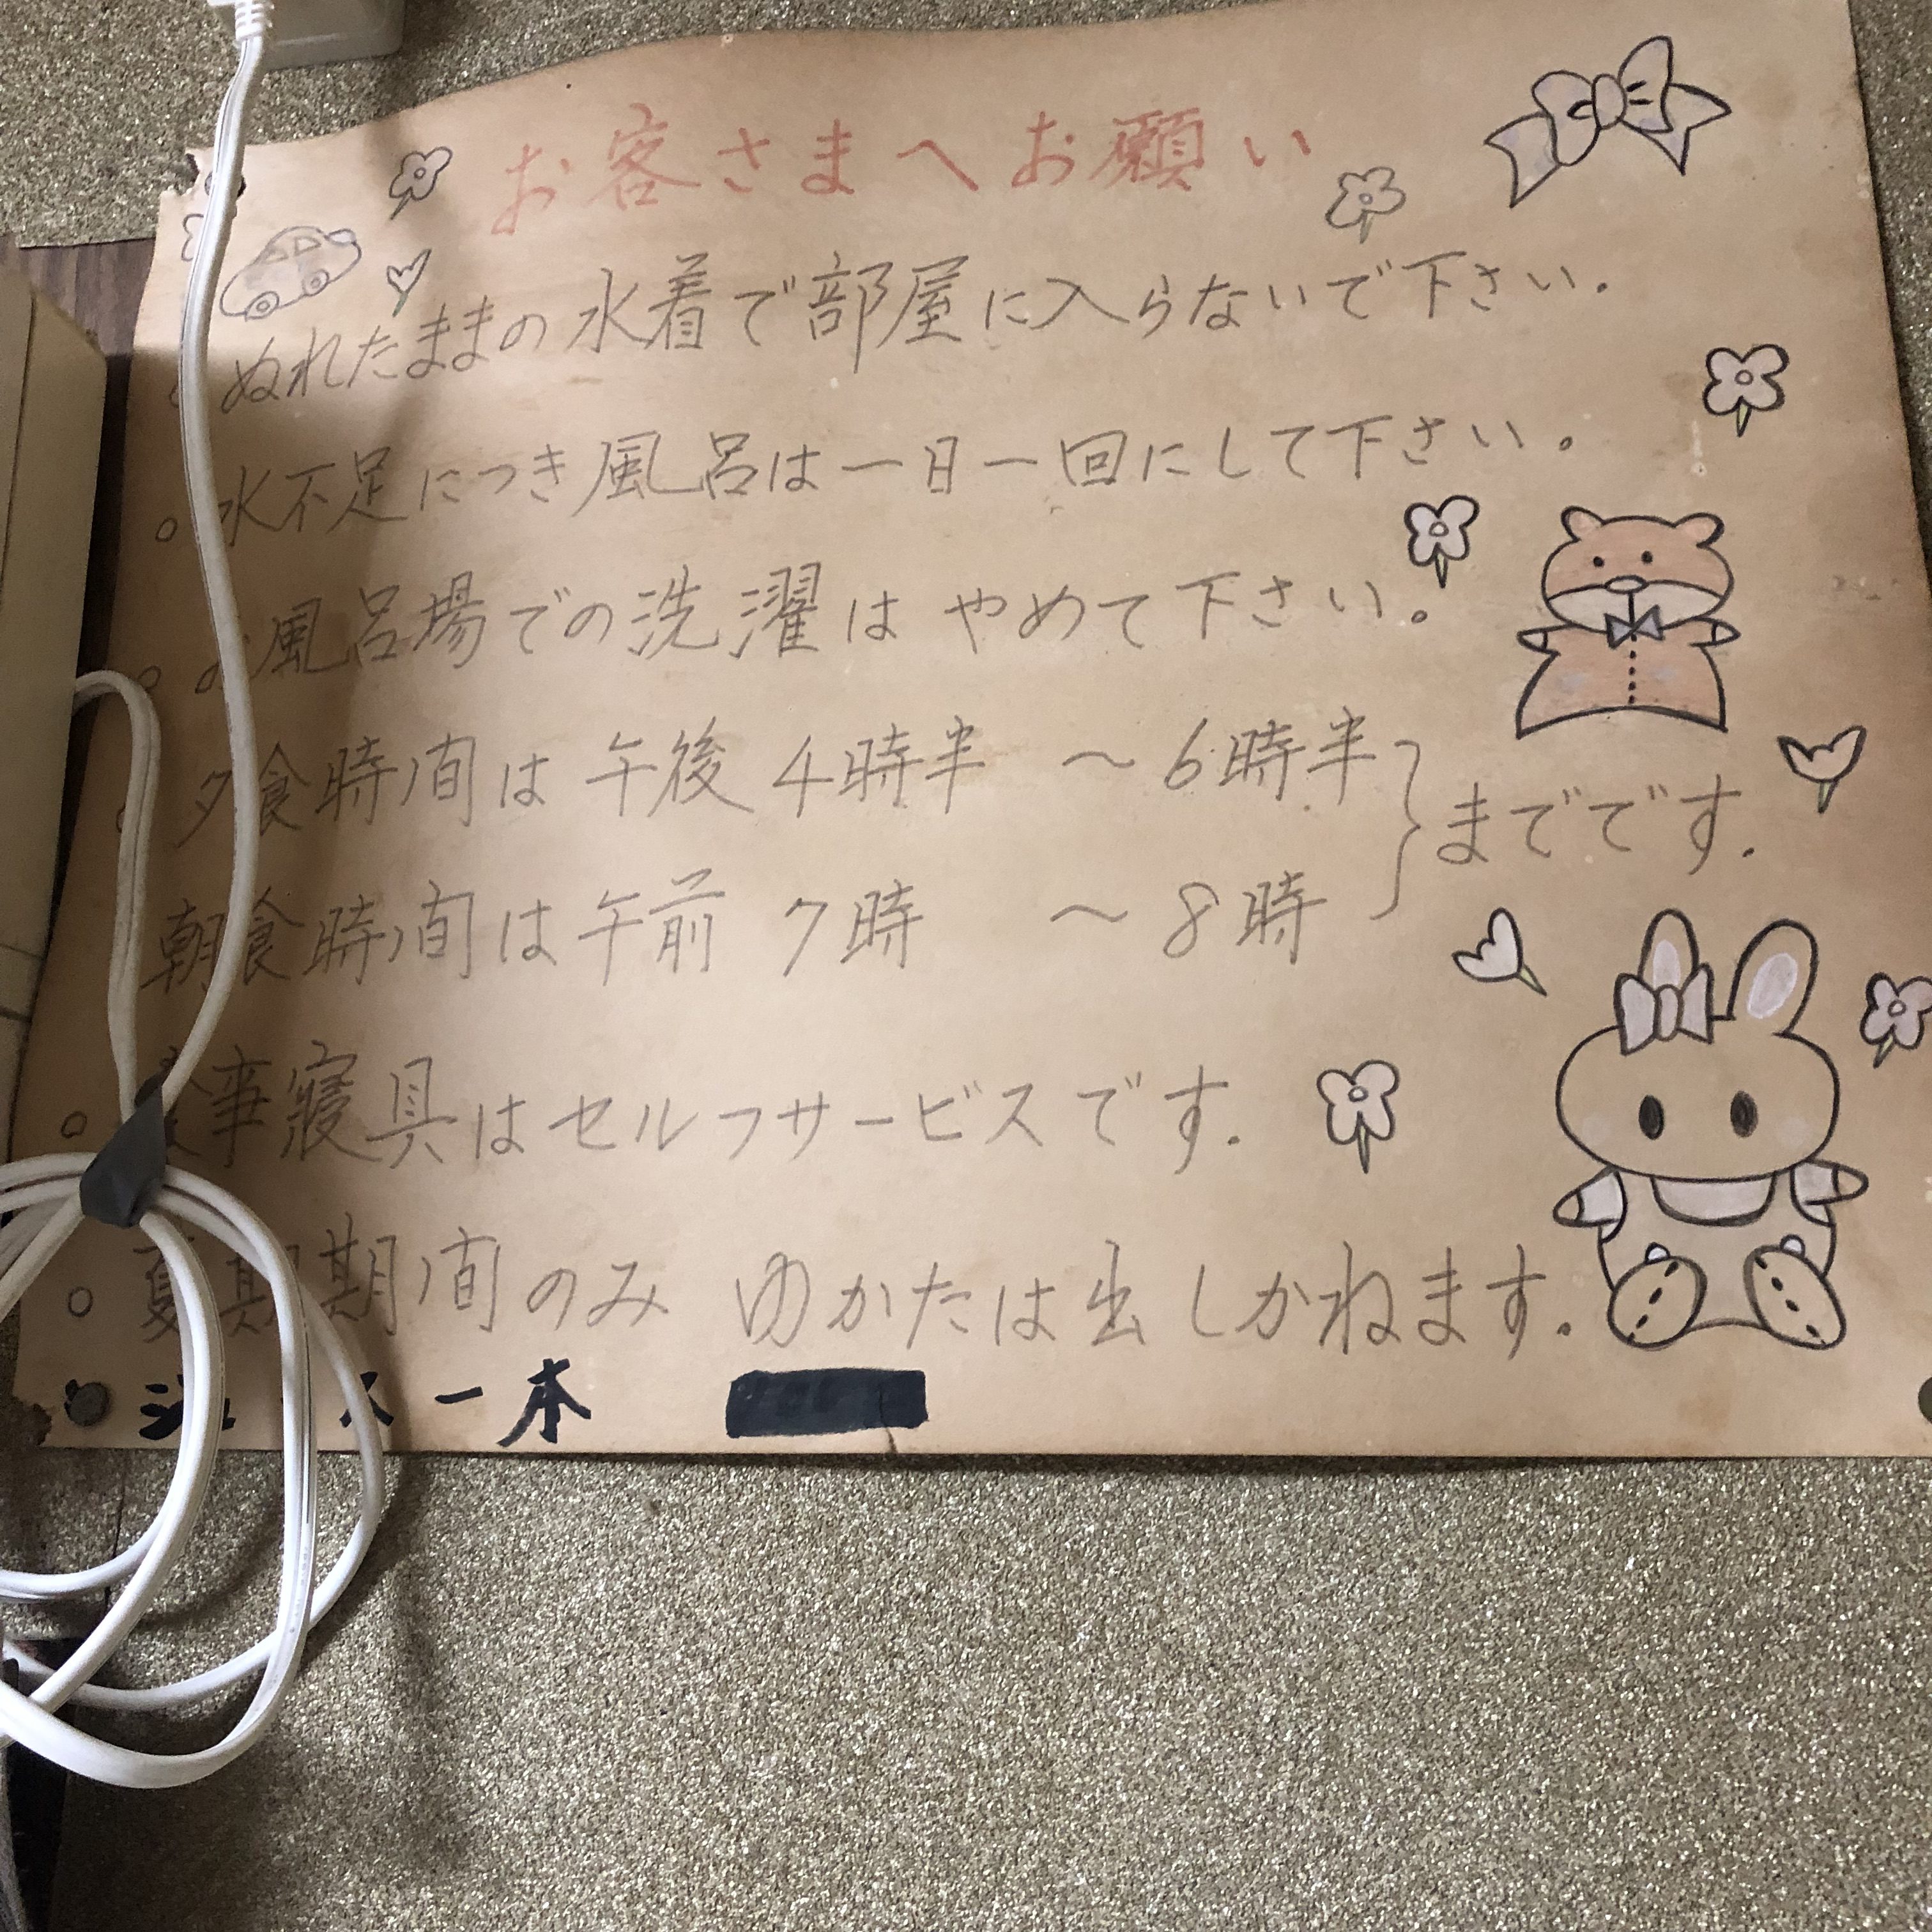 お客さまへお願い
ぬれたままの水着で部屋に入らないで下さい.
○水不足につき風呂は一日一回にして下さい。
○お風呂場での洗濯はやめて下さい。
○夕食時間は午後4時半 〜6時半
までです.
朝食時間は午前 7時 〜8時
○食事寝具はセルフサービスです.
○夏期期間のみ ゆかたは出しかねます.
一本